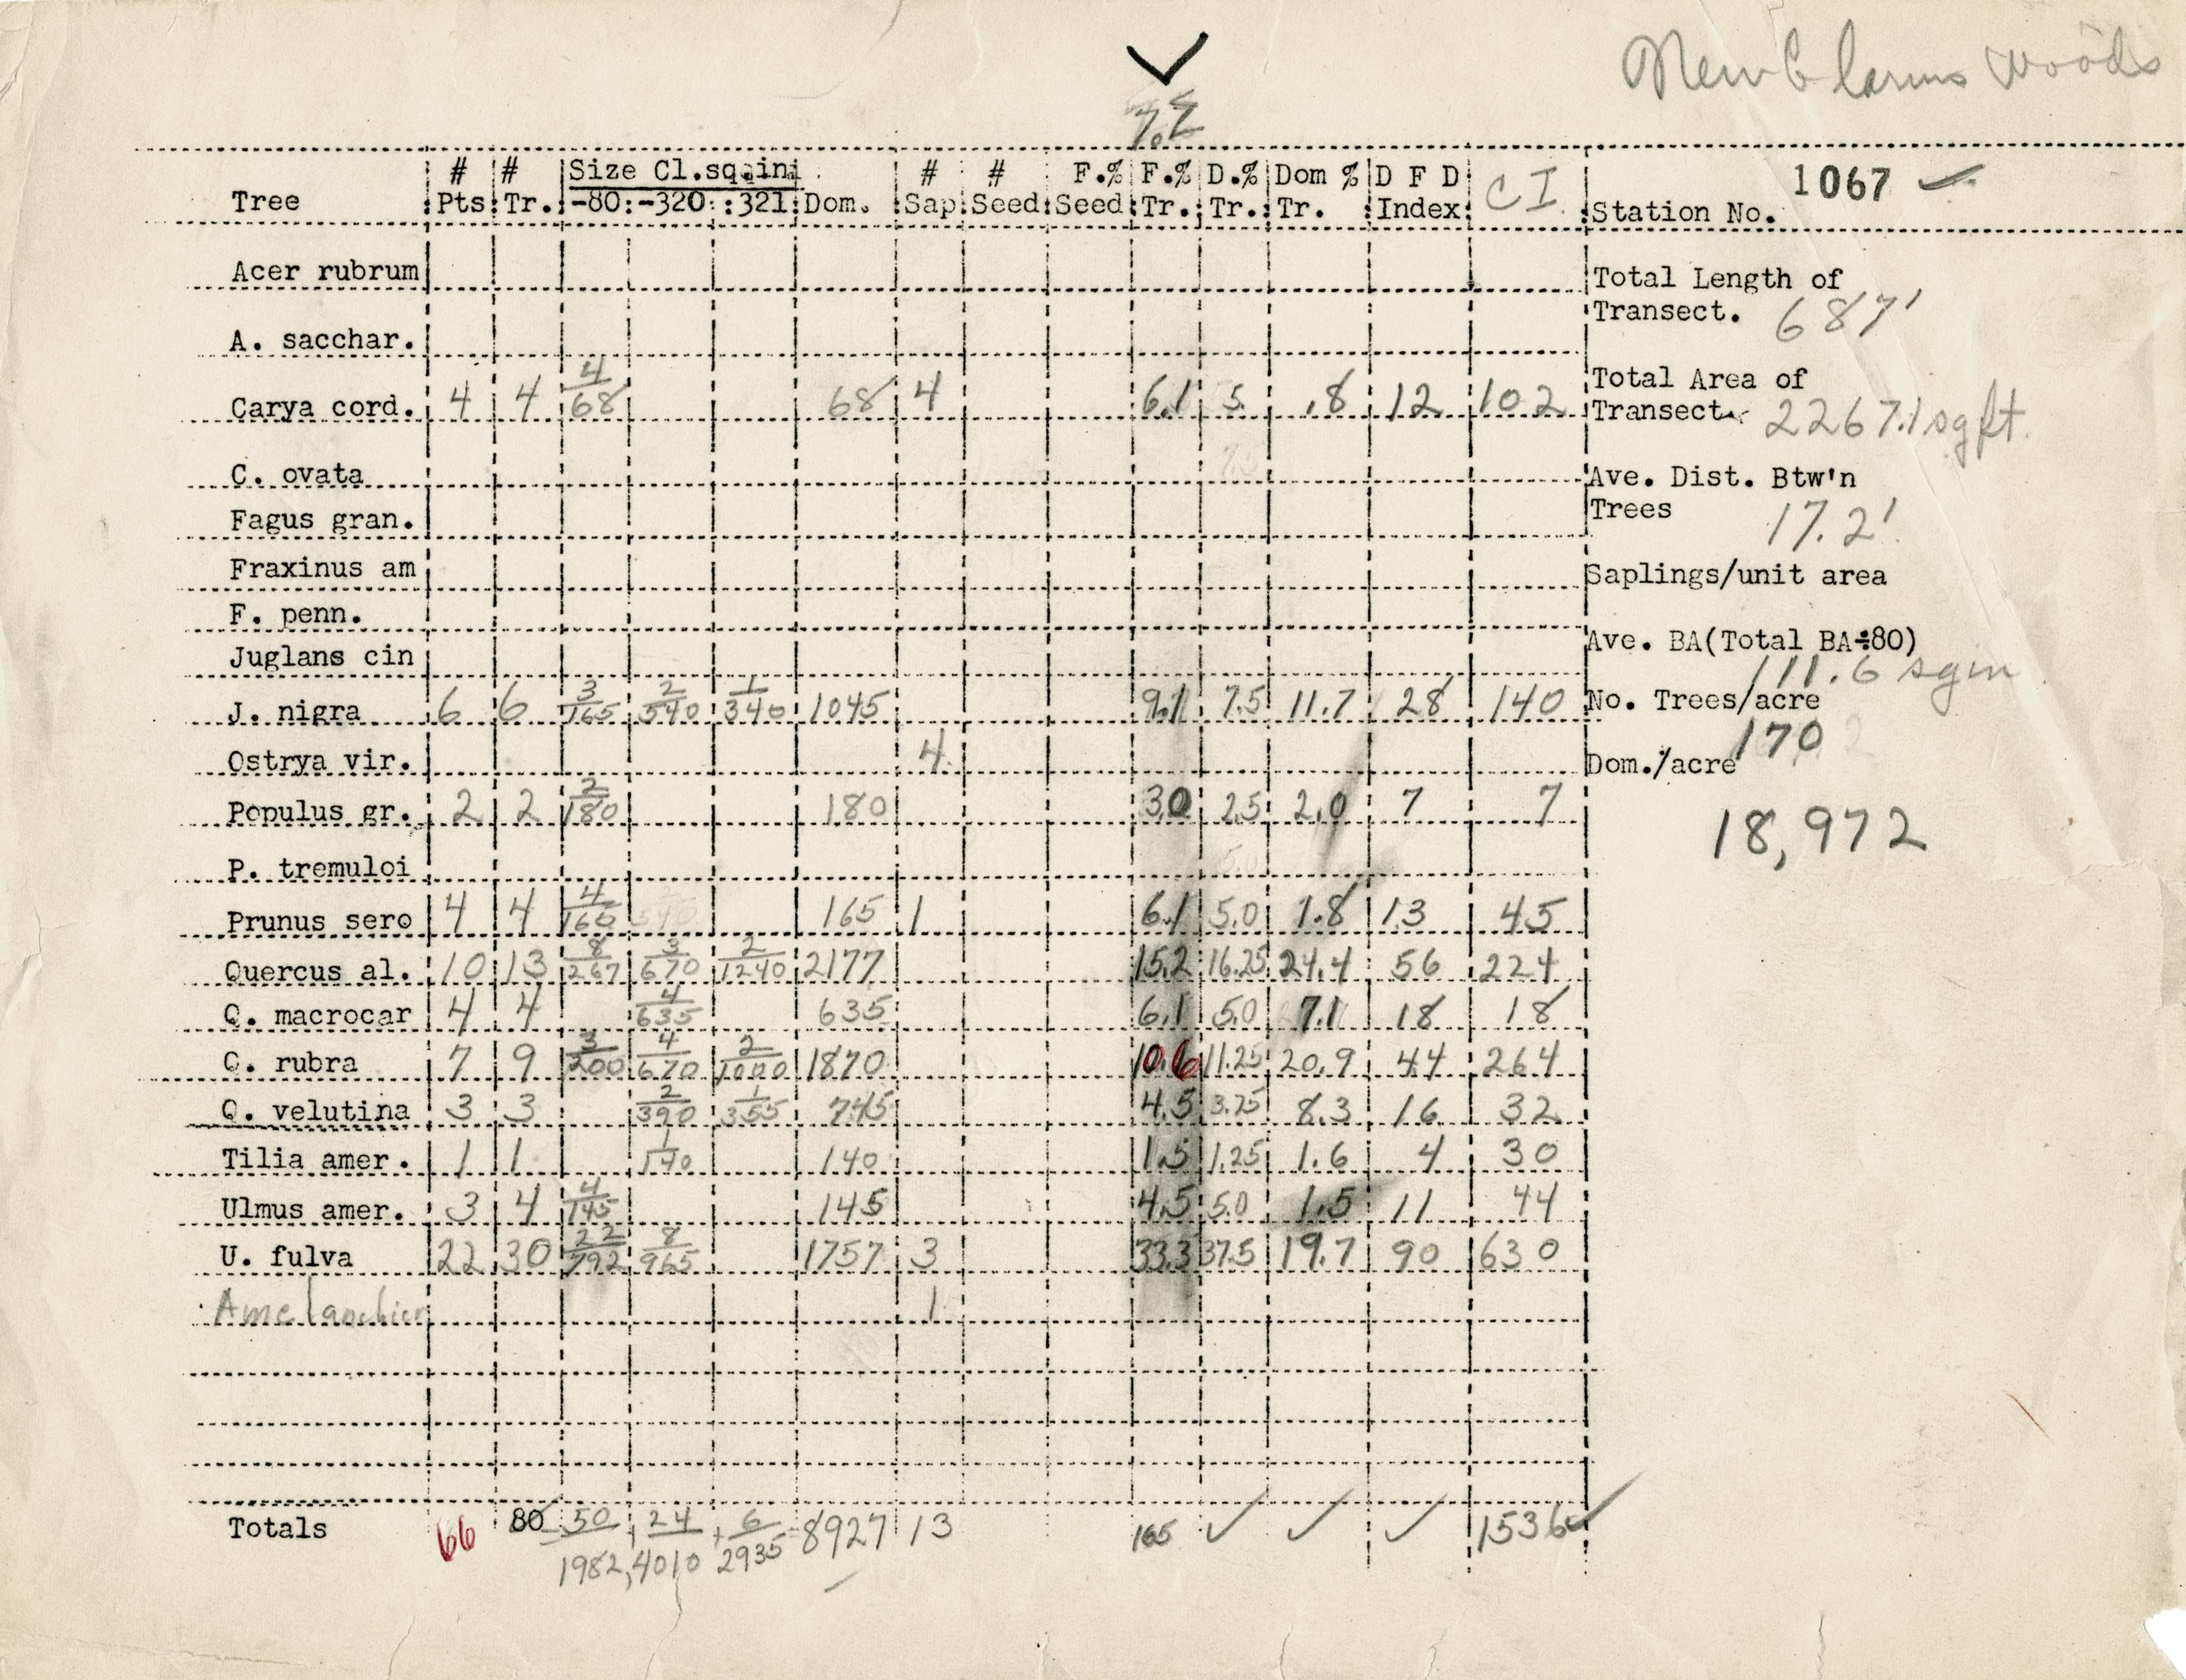 New Glarus Woods
# # Size Cl.sq.in. # # F.% F.% D.% Dom % D F D CI 1067
Tree Pts. Tr. -80:-320::321:Dom. Sap. Seed Seed Tr. Tr. Tr. Index Station No.
Acer rubrum
Total Length of
Transect. 687'
A. sacchar.
Carya cord. 4 4 4/68 68 4 6.1 5. .8 12 102
Total Area of
Transect. 22671 sq ft.
C. ovata
Ave. Dist. Btw'n
Trees 17.2'
Fagus gran.
Fraxinus am
Saplings/unit area
F. penn.
Juglans cin
Ave. BA(Total BA÷80)
111.6 sq in
J. nigra 6 6 3/165 2/540 1/340 1045 9.1 7.5 11.7 28 140
No. Trees/acre
170
Ostrya vir. 4
Dom./acre
18,972
Populus gr. 2 2 2/180 180 3.0 2.5 2.0 7 7
P. tremuloi
Prunus sero 4 4 4/165 165 1 6.1 5.0 1.8 13 45
Quercus al. 10 13 8/267 3/670 2/1240 2177 15.2 16.25 24.4 56 224
Q. macrocar 4 4 4/635 635 6.1 5.0 7.1 18 18
Q. rubra 7 9 3/200 4/670 2/1000 1870 10.6 11.25 20.9 44 264
Q. velutina 3 3 2/390 1/355 745 4.5 3.75 8.3 16 32
Tilia amer. 1 1 1/140 140 1.5 1.25 1.6 4 30
Ulmus amer. 3 4 4/145 145 4.5 5.0 1.5 11 44
U. fulva 22 30 22/792 8/965 1757 3 33.3 37.5 19.7 90 630
Amelanchier 1
Totals 66 80 50/1982, + 24/4010 + 6/2935 = 8927 13 165 1536